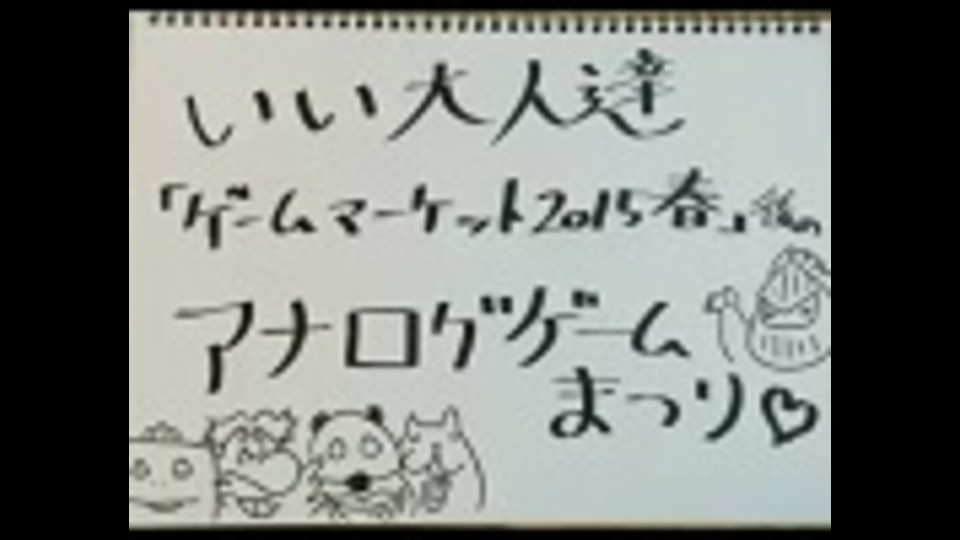 いい大人達
「ゲームマーケット2015春」後の
アナログゲーム
まつり♡